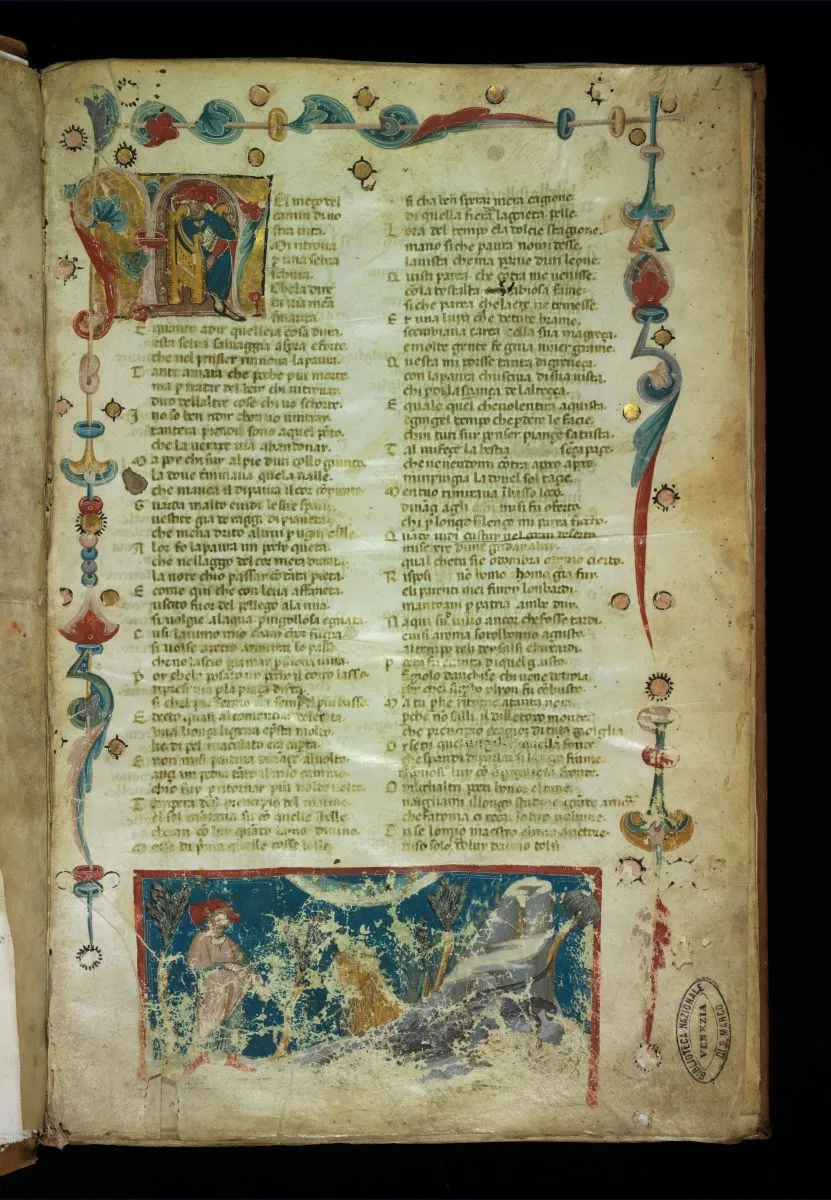 1
N
El meço del
camin di no
stra vita.
Mi ritrova
p una selva
schura.
Che la dire
ta via mera
smarita.
E quanto a dir quellera cosa dura.
esta selva salvaggia aspra e forte
che nel pensier rinova la paura.
T ante amara che poche piu morte
ma p tratar del ben chi vi trovai.
diro dellaltre cose chi vo schorte.
I no so ben ridir chom vo intrai.
tantera pien di sono a quel pôto.
che la verace via abandonai.
M a poy chi fuy al pie dun collo giunto.
la dove terminava quela valle.
che mavea di paura il cor
G uarda in alto e vidi le sue spalle
vestite gia de raggi di pianeta.
che mena drito altrui p ogni calle.
A lor fo la paura un pocho queta.
che nel laggo del cor mera durata.
la note chio passay cô tâta pieta.
E come quei che con lena affanata.
uscito fuor del pellego ala riva.
si volge alaqua pigollosa e guata.
C usi lanimo mio
si volse a retro a rimirar lo passo
che no lascio giamai psona viva.
P oy chel posato un pocho il corpo lasso.
ripresi via p la piagia diserta
si chel pie fermo era sempre piu basso
E
una lonça ligiera e psta molto.
ke di pel maculato era copta.
E non mi si partiva dinançe al volto.
ançi
chio fuy p ritornar piu volte volto.
T empera dal principio del matino.
el sol montava su cô quelle stelle.
cheran cô luy quâdo lamo divino.
M osse di pma quelle cosse belle.
si cha ben sperar mera cagione
di quella fiera la gaeta pelle.
L ora del tempo e la dolcie stagione.
ma no si che paura no mi desse.
la vista che ma parve dun leone.
Q uisti parea che côtra me venisse.
cô la testalta rabiosa fame
si che parea che laere ne temesse.
E t una lupa che de tute brame.
sembiava carca cella sua magreça.
e molte gente fe gia viver grame.
Q uesta mi porse tanta di graveça.
con la paura chusciva di sua vista.
chi pdi la sperança de lalteça.
E quale quel che volentier aquista.
e giugel tempo che pder lo facie.
chin tuti suy pensier piange satrista.
T al mi fece la bestia sença pace.
che venendomi côtra apoco apoco.
mi ripingia la dovel sol tace.
M entre rimirava i basso loco.
dinâçi agli ochi mi si fu oferto
chi p longo silenço mi parea fiocho.
Q uâdo vidi custuy nel gran deserto
miserere di me gridai a luy.
qual che tu sie od ombra od omo cierto.
R isposi no homo homo gia fuy.
e li parenti mei furon lonbardi.
mantoani p patria ambe duy.
N aqui sub iulio ancor che fosse tardi.
e visi a roma soto lbuono agusto.
al tempo deli dey falsi e busardi.
P oeta fu e cantai di quel giusto.
figiolo danchise chi vene de troia
poi chel supbo ylion fu côbusto.
M a tu pche ritorne a tanta noia.
pche no sali il diletoxo monte.
che principio e cagion di tuta gioia
O r se tu quel quella fonte.
che spandi di parlar si largo fiume.
risposi luy cô vgognosa fronte.
O degli altri poeti honor e lume.
vagliami il longo studio e grande amor
che fatoma cercar lo tuo volume.
T u se lo mio maestro el mio auctore.
tu so solo colui da cuio tolsi
BIBLIOTECA NAZIONALE
VENEZIA
DI S. MARCO